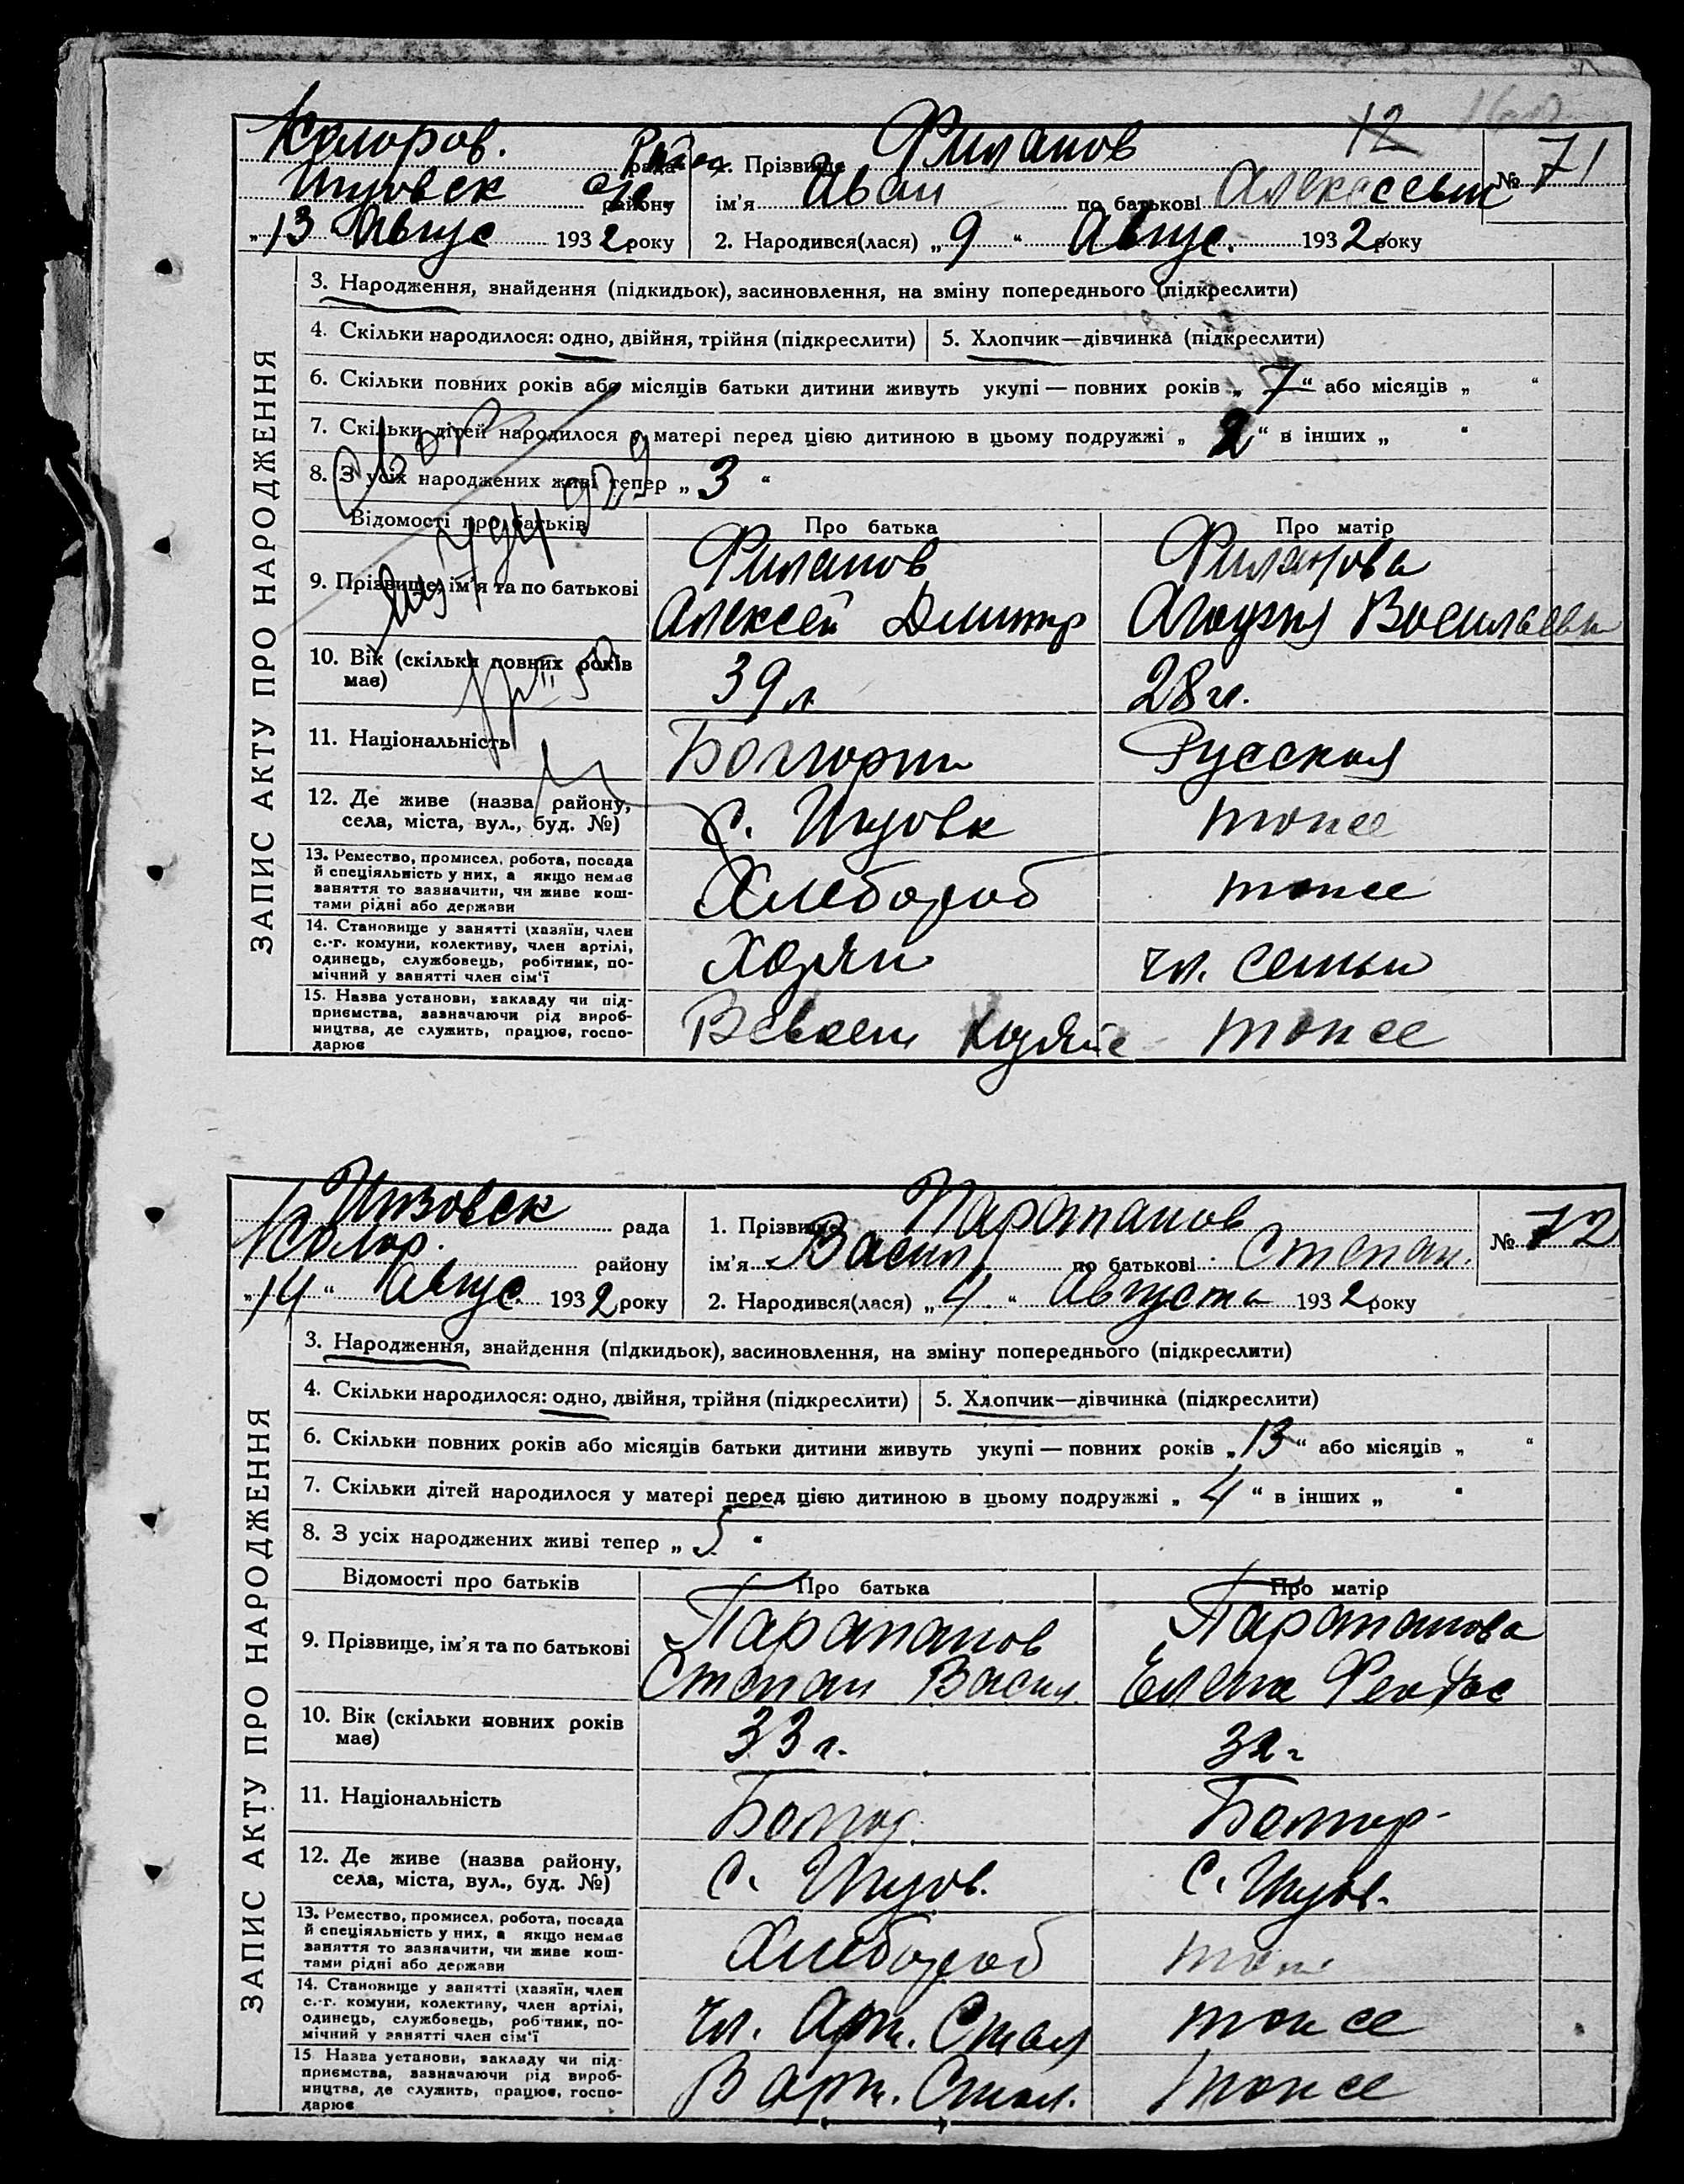 ЗАПИС АКТУ ПРО НАРОДЖЕННЯ
Коларов. рада
Инзовск району
„13 Авгус 1932 року
12
№ 71
1. Прізвище Филанов
ім'я Иван по батькові Алексеевич
2. Народився(лася) „9“ Авгус. 1932 року
3. Народження, знайдення (підкидьок), засиновлення, на зміну попереднього (підкреслити)
4. Скільки народилося: одно, двійня, трійня (підкреслити) 5. Хлопчик—дівчинка (підкреслити)
6. Скільки повних років або місяців батьки дитини живуть укупі — повних років „7“ або місяців „ “
7. Скільки дітей народилося у матері перед цією дитиною в цьому подружжі „2“ в інших „ “
8. З усіх народжених живі тепер „3“
Відомості про батьків Про батька Про матір
9. Прізвище, ім'я та по батькові
Филанов Филанова
Алексей Дмитр Агафия Васильевн
10. Вік (скільки повних років
має)
39 л 28 л.
11. Національність Болгорин Русская
12. Де живе (назва району,
села, міста, вул., буд. №)
с. Инзовк тоже
13. Ремество, промисел, робота, посада
й спеціяльність у них, а якщо немає
заняття то зазначити, чи живе кош-
тами рідні або держави
Хлебороб тоже
14. Становище у занятті (хазяїн, член
с.-г. комуни, колективу, член артілі,
одинець, службовець, робітник, по-
мічний у занятті член сім'ї
Хозяин чл. семьи
15. Назва установи, закладу чи під-
приємства, зазначаючи рід вироб-
ництва, де служить, працює, госпо-
дарює
В своем хозяйс тоже
ЗАПИС АКТУ ПРО НАРОДЖЕННЯ
Инзовск рада
Колар. району
„14“ Авгус. 1932 року
№ 72
1. Прізвище Парапанов
ім'я Васил по батькові Степан.
2. Народився(лася) „4“ Августа 1932 року
3. Народження, знайдення (підкидьок), засиновлення, на зміну попереднього (підкреслити)
4. Скільки народилося: одно, двійня, трійня (підкреслити) 5. Хлопчик—дівчинка (підкреслити)
6. Скільки повних років або місяців батьки дитини живуть укупі — повних років „13“ або місяців „ “
7. Скільки дітей народилося у матері перед цією дитиною в цьому подружжі „4“ в інших „ “
8. З усіх народжених живі тепер „5“
Відомості про батьків Про батька Про матір
9. Прізвище, ім'я та по батькові
Парапанов Парапанова
Степан Васил. Елена Феодос
10. Вік (скільки повних років
має)
33 г. 32 г
11. Національність Болгор. Болгар-
12. Де живе (назва району,
села, міста, вул., буд. №)
с. Инзов. с. Инзов.
13. Ремество, промисел, робота, посада
й спеціяльність у них, а якщо немає
заняття то зазначити, чи живе кош-
тами рідні або держави
Хлебороб тоже
14. Становище у занятті (хазяїн, член
с.-г. комуни, колективу, член артілі,
одинець, службовець, робітник, по-
мічний у занятті член сім'ї
чл. Арт. Стал тоже
15 Назва установи, закладу чи під-
приємства, зазначаючи рід вироб-
ництва, де служить, працює, госпо-
дарює
В арт. Стал. тоже